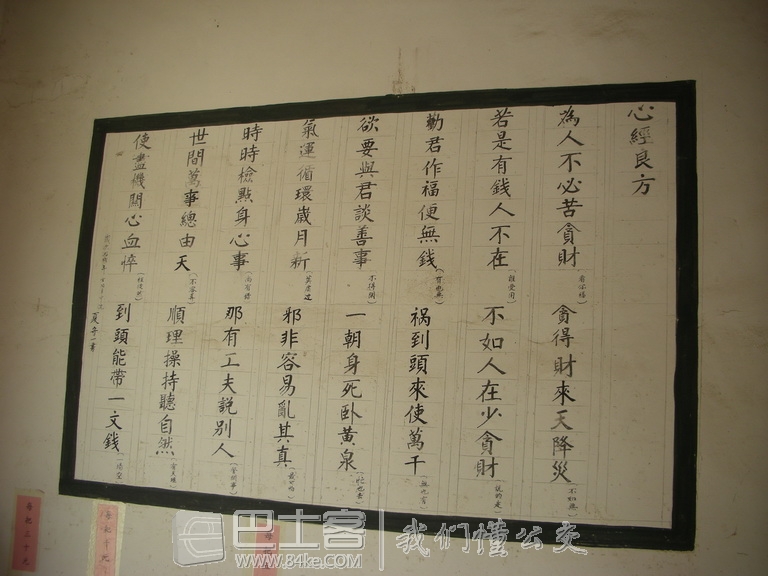 心經良方
為人不必苦貪財
貪得財來天降災
若是有錢人不在
不如人在少貪財
勸君作福便無錢
祸到頭來使萬千
欲要與君談善事
不得閑
一朝身死卧黄泉
氣運循環歲月新
邪非容易亂其真
時時檢點身心事
那有工夫説别人
管閑事
世間萬事總由天
順理操持聽自然
使盡機關心血悴
到頭能帶一文錢
一場空
巴士客
www.84ke.com
我们懂公交